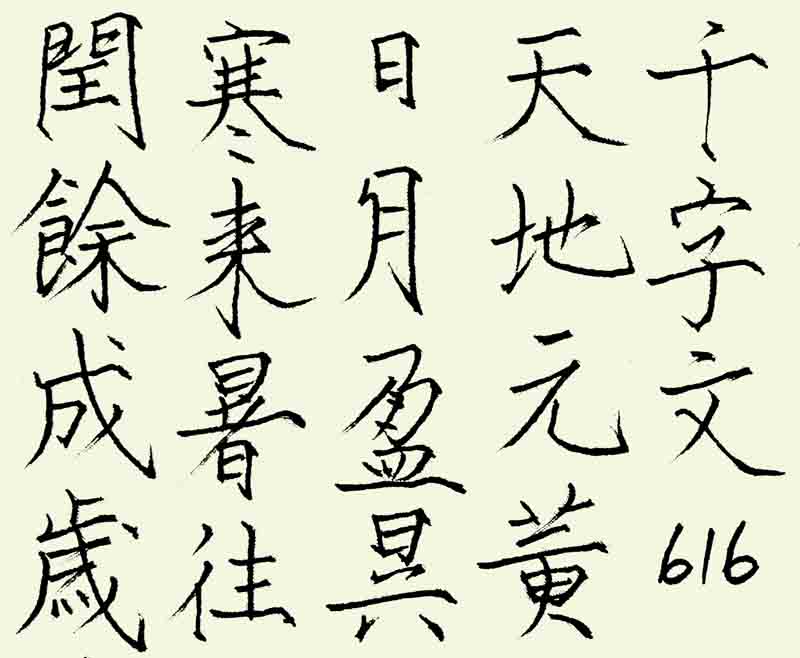 千字文 616
天地元黄
日月盈昃
寒来暑往
閏餘成歲